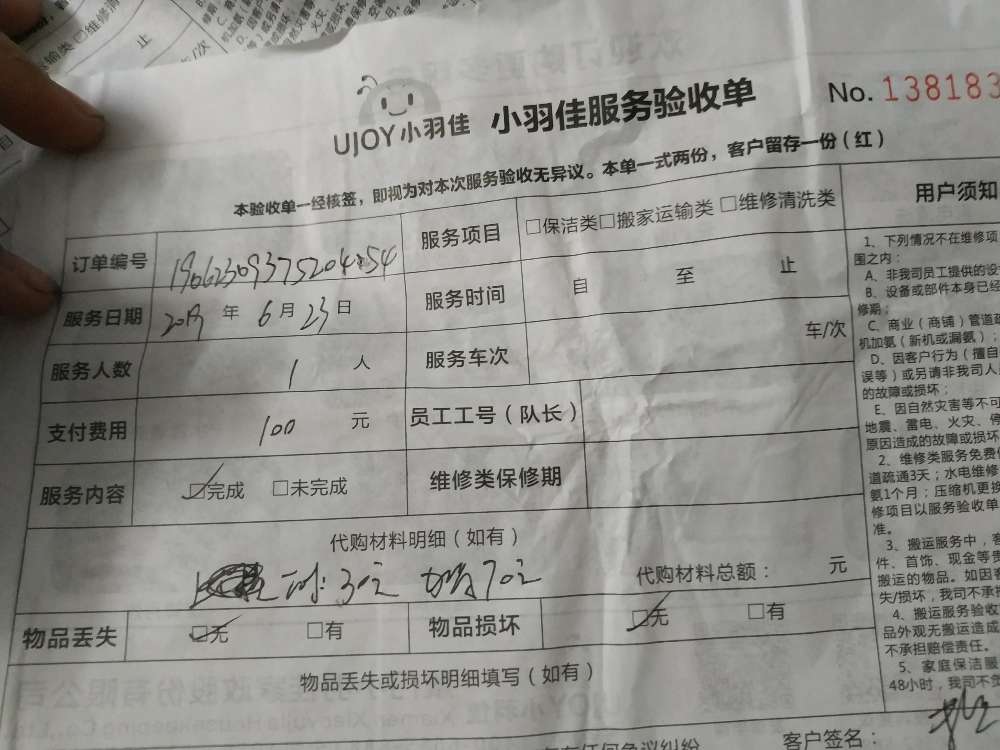 UJOY小羽佳 小羽佳服务验收单 No. 138183
本验收单一经核签，即视为对本次服务验收无异议。本单一式两份，客户留存一份（红）
订单编号 服务项目 □保洁类□搬家运输类 □维修清洗类
服务日期 2019 年 6 月 23 日 服务时间 自 至 止
服务人数 1 人 服务车次 车/次
支付费用 100 元 员工工号（队长）
服务内容 ☑完成 □未完成 维修类保修期
代购材料明细（如有）
30元 70元 代购材料总额： 元
物品丢失 ☑无 □有 物品损坏 ☑无 □有
物品丢失或损坏明细填写（如有）
客户签名：
用户须知
1、下列情况不在维修项
围之内：
A、非我司员工提供的设
B、设备或部件本身已经
修期；
C、商业（商铺）管道疏
机加氨（新机或漏氨）；
D、因客户行为（擅自
误等）或另请非我司人
的故障或损坏；
E、因自然灾害等不可
地震、雷电、火灾、停
原因造成的故障或损坏
2、维修类服务免费
道疏通3天；水电维修
氨1个月；压缩机更换
修项目以服务验收单
准。
3、搬运服务中，客
件、首饰、现金等贵
搬运的物品。如因客
失/损坏，我司不承担
4、搬运服务验收
品外观无搬运造成
不承担赔偿责任。
5、家庭保洁服
48小时，我司不负